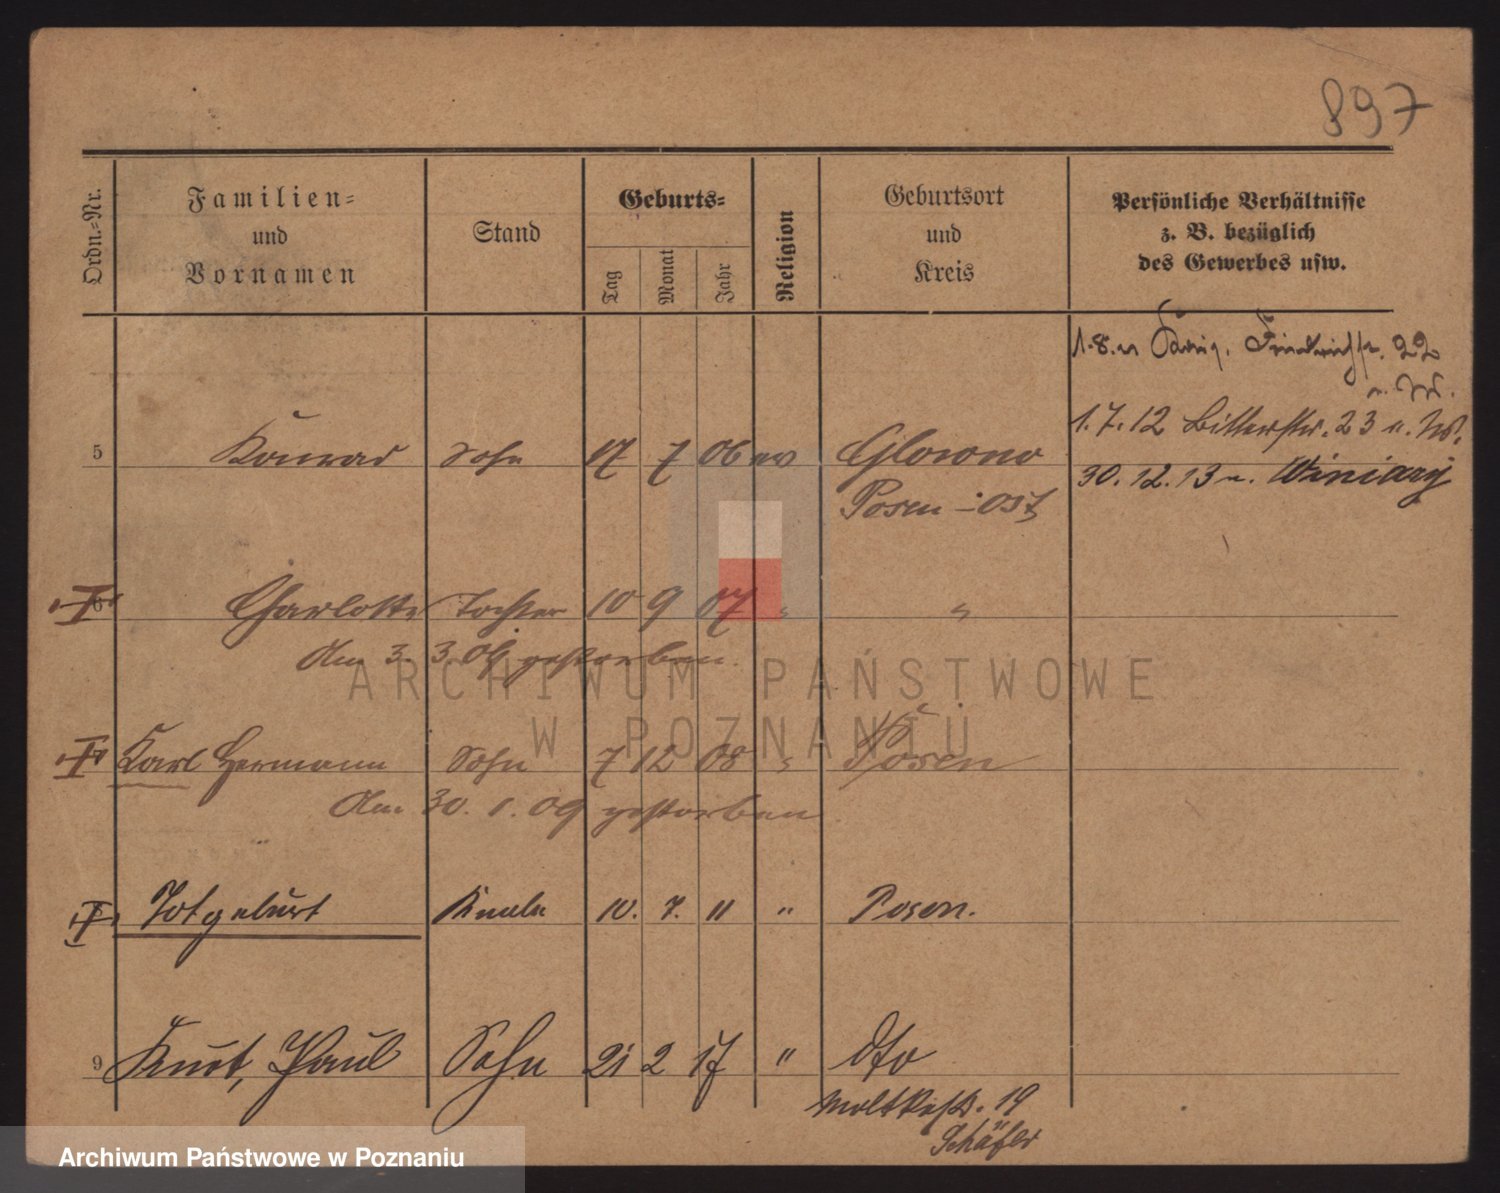 897
Ordn.-Nr.
Familien-
und
Vornamen
Stand
Geburts-
Tag
Monat
Jahr
Religion
Geburtsort
und
Kreis
Persönliche Verhältnisse
z. B. bezüglich
des Gewerbes usw.
1.8. 22
1.7.12 Bitterstr. 23 n. W.
30.12.13 n. Winiary
5 Konrad Sohn 17 7 06 ev Glowno
Posen-Ost
6 Charlotte Tochter 10 9 07 " "
Am 3. 3. 09 gestorben.
Karl Hermann Sohn 7 12 08 " Posen
Am 30. 1. 09 gestorben
Totgeburt Knabe 10. 7. 11 " Posen.
9 Kurt, Paul Sohn 21 2 17 " dto
Moltkestr. 19
Schäfer
ARCHIWUM PAŃSTWOWE
W POZNANIU
Archiwum Państwowe w Poznaniu